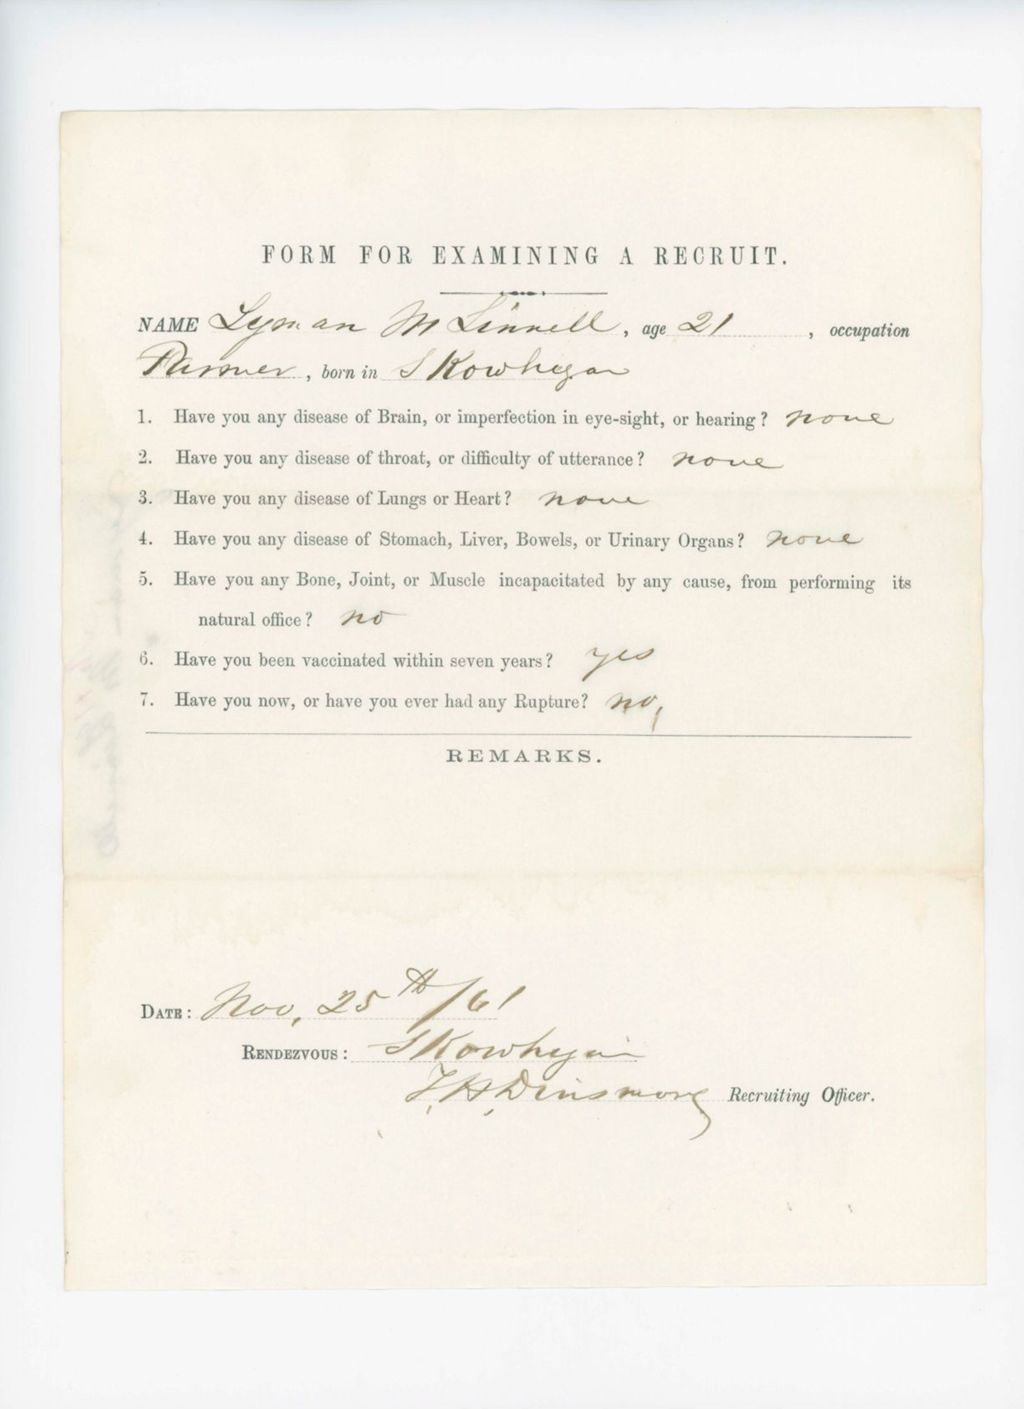 FORM FOR EXAMINING A RECRUIT.
NAME Lyman M Linnell, age 21, occupation
Farmer, born in Skowhegan
1. Have you any disease of Brain, or imperfection in eye-sight, or hearing? none
2. Have you any disease of throat, or difficulty of utterance? none
3. Have you any disease of Lungs or Heart? none
4. Have you any disease of Stomach, Liver, Bowels, or Urinary Organs? none
5. Have you any Bone, Joint, or Muscle incapacitated by any cause, from performing its
natural office? no
6. Have you been vaccinated within seven years? yes
7. Have you now, or have you ever had any Rupture? no,
REMARKS.
DATE: Nov, 25th/61
RENDEZVOUS: Skowhegan
F, H, Dinsmore Recruiting Officer.